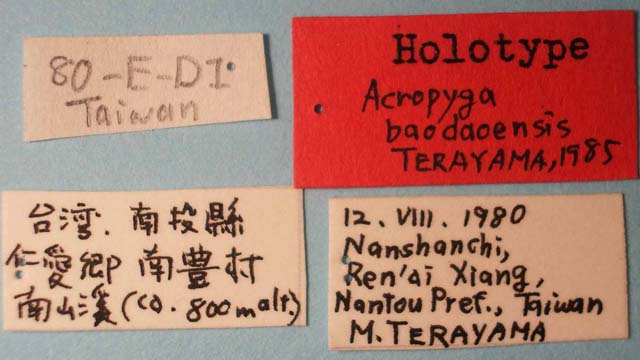 80-E-DI
Taiwan
Holotype
Acropyga
baodaoensis
TERAYAMA, 1985
台湾. 南投縣
仁愛鄉 南豊村
南山溪 (ca. 800m alt.)
12. VIII. 1980
Nanshanchi,
Ren'ai Xiang,
Nantou Pref., Taiwan
M. TERAYAMA